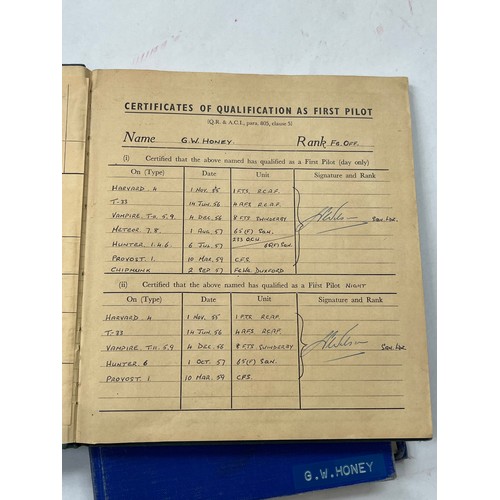 CERTIFICATES OF QUALIFICATION AS FIRST PILOT
(Q.R. & A.C.I., para. 805, clause 5)
Name G.W. HONEY. Rank FG. OFF.
(i) Certified that the above named has qualified as a First Pilot (day only)
On (Type) Date Unit Signature and Rank
HARVARD. 4 1 NOV. 55 1 FTS. R.C.A.F.
T-33 14 JUN. 56 4 AFS. R.C.A.F.
VAMPIRE. T.11. 5.9 4 DEC. 56 8 FTS. SWINDERBY SQN. LDR.
METEOR. 7.8. 1 AUG. 57 65(F) SQN.
HUNTER. 1.4.6. 6 JUN. 57 233 OCU 65(F) SQN.
PROVOST. 1. 10 MAR. 59 C.F.S.
CHIPMUNK 2 SEP. 57 DUXFORD
(ii) Certified that the above named has qualified as a First Pilot NIGHT
On (Type) Date Unit Signature and Rank
HARVARD. 4 1 NOV. 55 1 FTS. RCAF.
T-33 14 JUN. 56 4 AFS. RCAF.
VAMPIRE. T.11. 5.9 4 DEC. 56 8 FTS. SWINDERBY SQN. LDR
HUNTER 6 1 OCT. 57 65(F) SQN.
PROVOST. 1. 10 MAR. 59 CFS.
G.W.HONEY